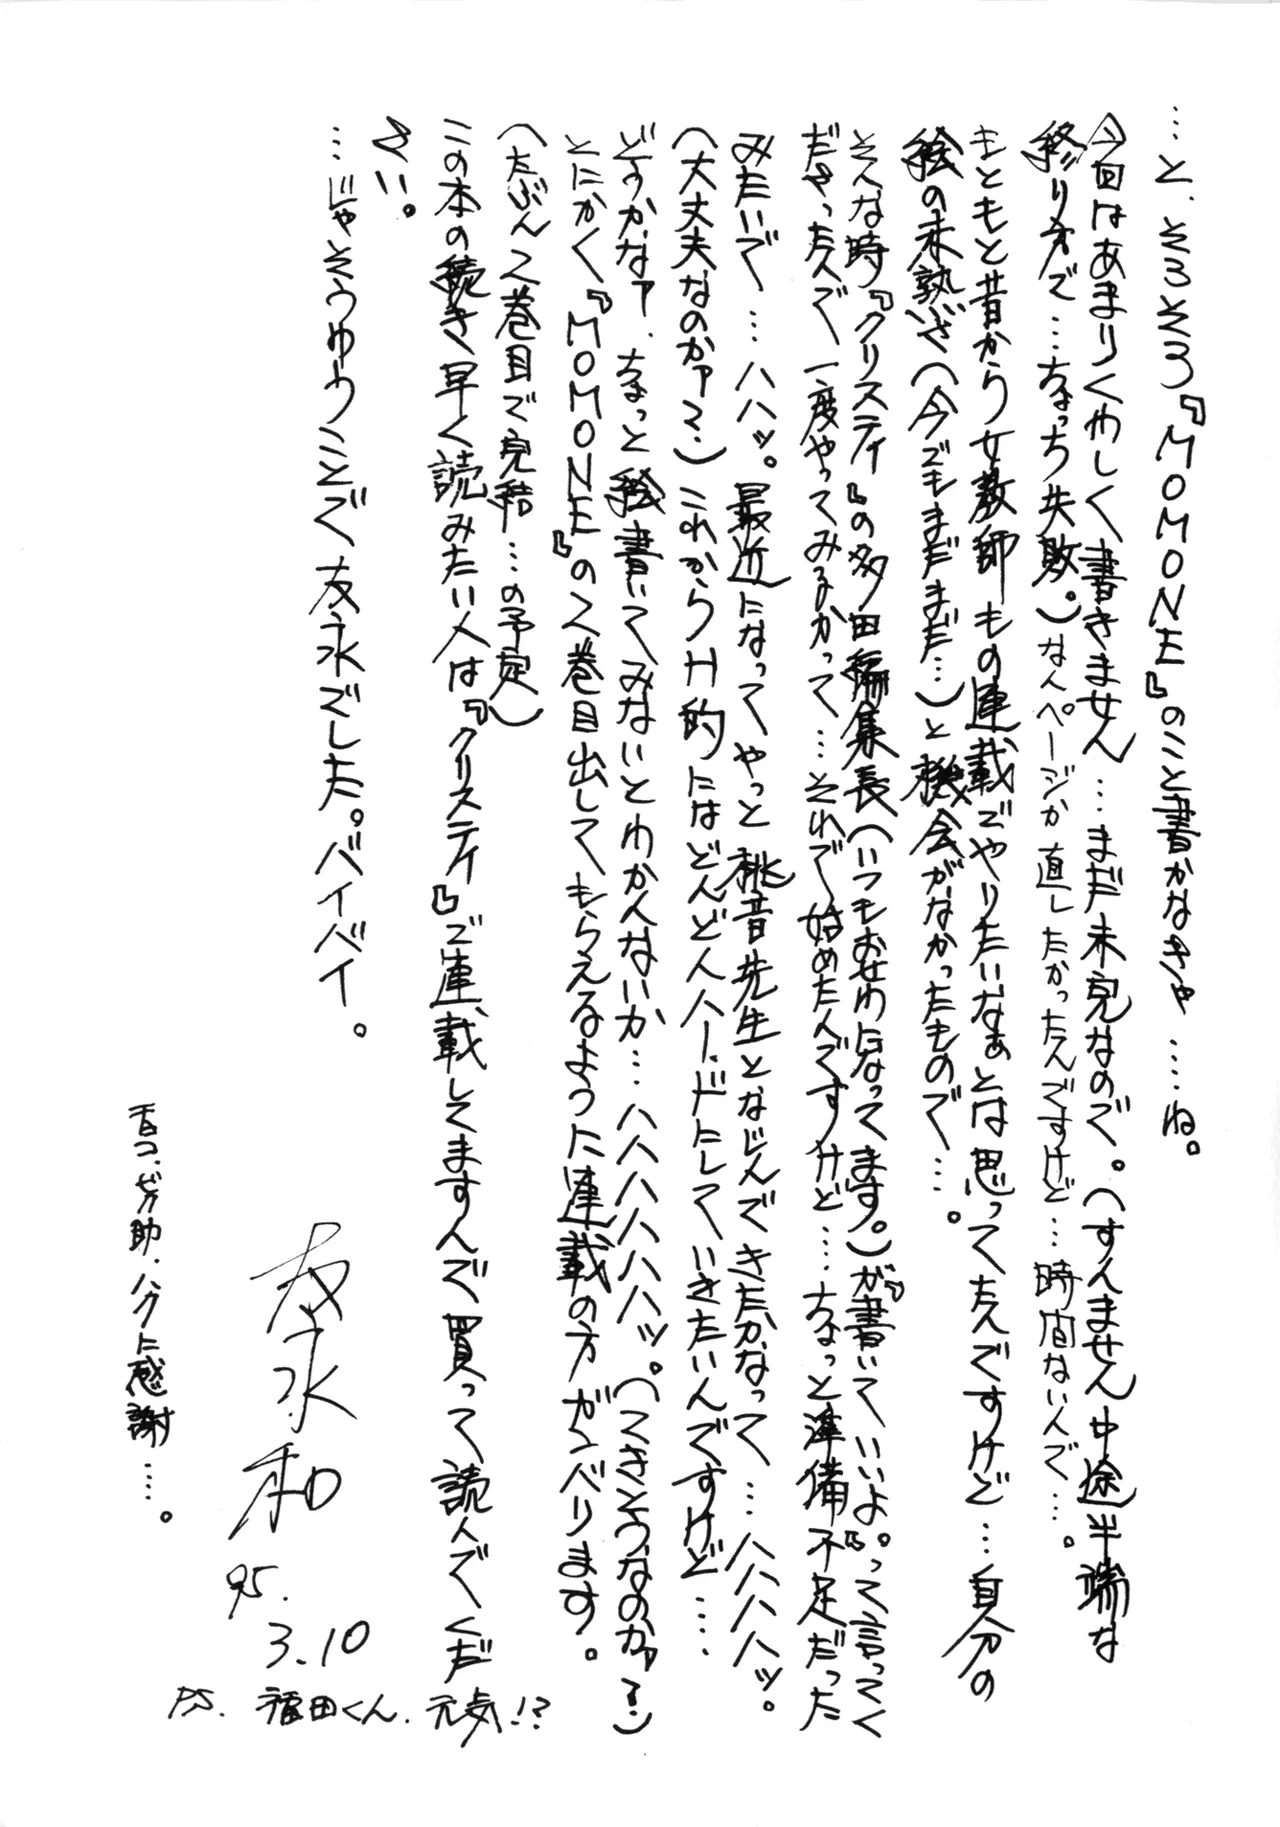 …と、そろそろ『MOMONE』のこと書かなきゃ……ね。
今回はあまりくわしく書きません…まだ未完なので。(すんません中途半端な
終り方で…ちょっち失敗。)なんページか直したかったんですけど…時間ないんで…。
もともと昔から女教師もの連載でやりたいなぁとは思ってたんですけど…自分の
絵の未熟さ(今でもまだまだ…)と機会がなかったもので…。
そんな時『クリスティ』の多田編集長(いつもおせわになってます。)が『書いていいよ。』って言ってく
ださったんで、一度やってみるかって…それで始めたんですけど……ちょっと準備不足だった
みたいで…ハハッ。最近になってやっと桃音先生となじんできたかなって…ハハハハッ。
(大丈夫なのかァ?)これからH的にはどんどんハードにしていきたいんですけど……
どうかなァ、ちょっと絵書いてみないとわかんないか…ハハハハハハッ。(てきとうなのかァ?)
とにかく『MOMONE』の2巻目出してもらえるように連載の方ガンバります。
(たぶん2巻目で完結…の予定)
この本の続き早く読みたい人は『クリスティ』で連載してますんで買って読んでくだ
さい。
…じゃそうゆうことで友永でした。バイバイ。
友永和
95.
3.10
P.S. 福田くん、元気!?
助、ハクに感謝……。